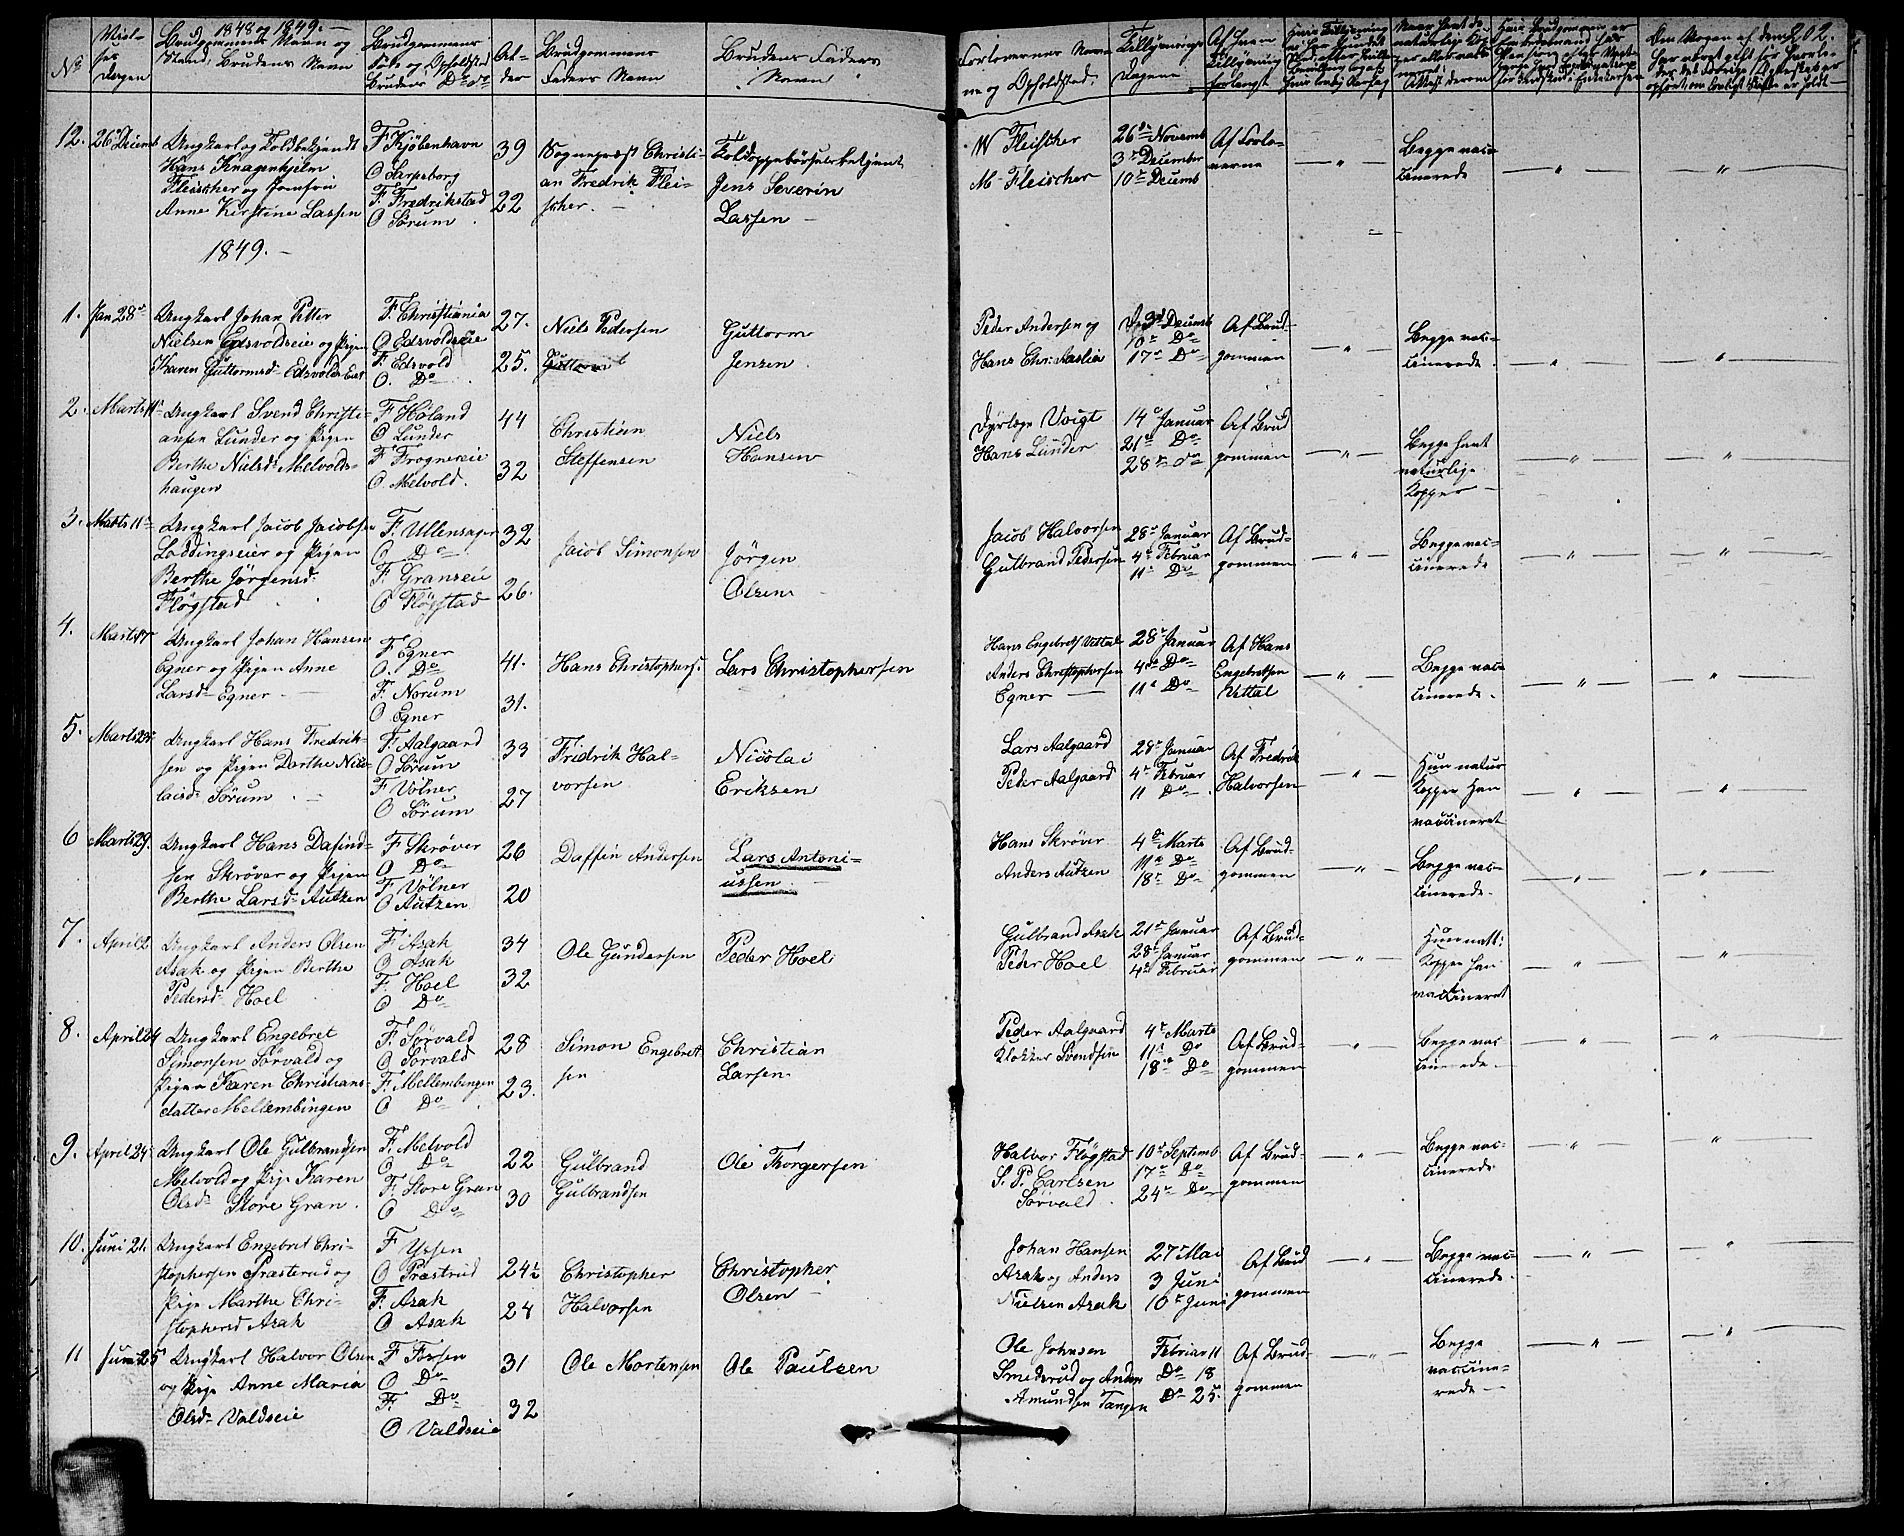 1848 og 1849.
202.
No
Viel-
ses
Dagen
Brudgommens Navn og
Stand, Brudens Navn
Brudgommens
Føde og Opholdsted
Brudens Do Do
Al-
der
Brudgommens
Faders Navn
Brudens Faders
Navn
Forlovernes Nav-
ne og Opholdsted.
Tillysnings
Dagene
Af hvem
Tillysning
forlangt
12. 26de Decemb
Ungkarl og Toldbetjendt
Hans Knagenhjelm
Fleischer og Jomfru
Anne Kirstine Lassen
F Kjøbenhavn
O Sarpsborg
F. Fredrikstad
O Sørum
39
22
Sognepræst Christi-
an Fredrik Flei-
scher.
Toldoppebørselsbetjent
Jens Severin
Lassen
W Fleischer
M. Fleischer
26de Novemb
3de December
10de Decemb
Af Forlo-
verne
Begge vac-
cinerede
1849.
1. Jan 28de
Ungkarl Johan Petter
Nielsen Edsvoldseie og Pigen
Karen Guttormsd Edsvolds Eiet
F. Christiania
O Edsvoldseie
F. Edsvold
O. Do
27.
25.
Niels Pedersen
Guttorm
Guttorm
Jensen
Peder Andersen og
Hans Chr: Aaslia
3de Decemb
10de Do
17de Do
Af Brud-
gommen
Begge vac-
cinerede
2. Marts 11te
Ungkarl Svend Christi-
ansen Lunder og Pigen
Berthe Nielsd: Melvolds-
haugen
F Høland
O Lunder
F Frognereie
O Melvold.
44
32
Christian
Steffensen
Niels
Hansen
Dyrlæge Voigt
Hans Lunder
14de Januar
21de Do
28de Do
Af Brud
gommen
Begge havt
naturlige
Kopper
3. Marts 11te
Ungkarl Jacob Jacobsen
Loddingseier og Pigen
Berthe Jørgensd:
Fløgstad
F. Ullensager
O Do
F. Granseie
O Fløgstad
32
26.
Jacob Simonsen
Jørgen
Olsen
Jacob Halvorsen
Gulbrand Pedersen
28de Januar
4de Februar
11te Do
Af Brud-
gommen
Begge vac-
cinerede
4. Marts
Ungkarl Johan Hansen
Egner og Pigen Anne
Larsd: Egner
F. Egner
O. Do
F. Norum
O Egner
41.
31.
Hans Christophers.
Lars Christophersen
Hans Engebrets Vittal
Anders Christophersen
Egner
28de Januar
4de Do
11te Do
Af Hans
Engebretsen
Vittal
Begge vac-
cinerede.
5. Marts 25
Ungkarl Hans Fredrik-
sen og Pigen Dorthe Nico-
laisd: Sørum
F. Aalgaard
O Sørum
F Vølner
O Sørum
33
27
Fridrik Hal-
vorsen
Nicolai
Eriksen
Lars Aalgaard
Peder Aalgaard
28de Januar
4de Februar
11 Do
Af Fredrik
Halvorsen
Hun natur
Kopper Han
vaccineret
6 Marts 29.
Ungkarl Hans Dafind-
sen Skrøver og Pigen
Berthe Larsd: Autzen
F Skrøver
O Do
F. Vølner
O Autzen
26
20
Daffin Andersen
Lars Antoni-
ussen
Hans Skrøver
Anders Autzen
4de Marts
11te Do
18de Do
Af Brud-
gommen
Begge vac-
cinerede
7. April 2
Ungkarl Anders Olsen
Asak og Pigen Berthe
Pedersd: Hoel
F. Asak
O Asak
F. Hoel
O Do
34
32
Ole Gundersen
Peder Hoel
Gulbrand Asak
Peder Hoel
21de Januar
28de Januar
4de Februar
Af Brud-
gommen
Hun natt:
Kopper han
vaccineret
8. April 24
Ungkarl Engebret
Simonsen Sørvald og
Pigen Karen Christians-
datter Mellembingen
F. Sørvald
O Sørvald
F. Mellembingen
O Do
28
23.
Simon Engebret-
sen
Christian
Larsen
Peder Aalgaard
Klokker Svendsen
4de Marts
11te Do
18de Do
Af Brud-
gommen
Begge vac
cinerede
9. April 24
Ungkarl Ole Gulbrandsen
Melvold og Pige Karen
Olsd: Store Gran.
F. Melvold
O Do
F. Store Gran
O Do
22
30
Gulbrand
Gulbrandsen
Ole Thorgersen
Halvor Fløgstad
S. P. Carlsen
Sørvald
10de Septemb
17de Do
24de Do
Af Brud-
gommen
Begge vac-
cinerede
10. Juni 21.
Ungkarl Engebret Chri-
stophersen Præsterud og
Pige Marthe Chri-
stophersd Asak
F
Yssen
O Præstrud
F. Asak
O Asak
24½
24
Christopher
Halvorsen
Christopher
Olsen
Johan Hansen
Asak og Anders
Nielsen Asak
27de Mai
3 Juni
10de Juni
Af Brud
gommen
Begge vac-
cinerede.
11 Juni 25
Ungkarl Halvor Olsen
og Pige Anne Maria
Olsd: Valdseie
F Fossen
O Do
F. Do
O Valdseie
31
32
Ole Mortensen
Ole Paulsen
Ole Johnsen
Smedsrud og Anders
Amundsen Tangen
Februar 11
Do 18
Do 25.
Af Brud-
gommen
Begge
vaccine-
rede